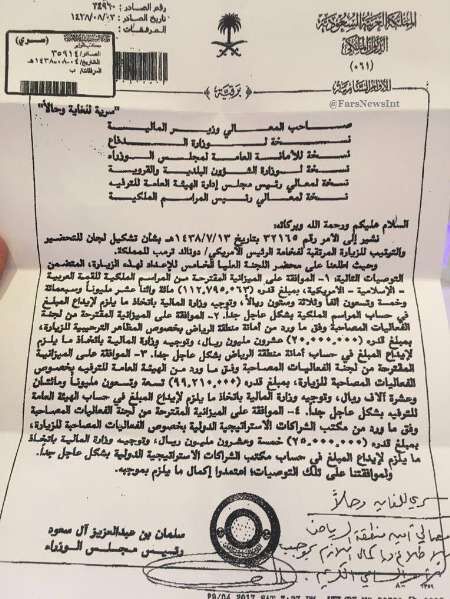 المملكة العربية السعودية
الديوان الملكي
(٠٦١)
الأوامر السامية
@FarsNewsInt
رقم الصادر: ٣٤٩٦٠
تاريخ الصادر: ١٤٣٨/٠٨/٠٣
المرفقات:
(سري)
﴿ برقية ﴾
"سرية للغاية وحالاً"
صاحب المعالي وزير المالية
نسخة لوزارة الدفاع
نسخة للأمانة العامة لمجلس الوزراء
نسخة لوزارة الشؤون البلدية والقروية
نسخة لمعالي رئيس مجلس إدارة الهيئة العامة للترفيه
نسخة لمعالي رئيس المراسم الملكية
السلام عليكم ورحمة الله وبركاته:
نشير إلى الأمر رقم ٣٢١٦٥ بتاريخ ١٤٣٨/٧/١٣هـ بشأن تشكيل لجان للتحضير
والترتيب للزيارة المرتقبة لفخامة الرئيس الأمريكي/ دونالد ترمب للمملكة.
وحيث اطلعنا على محضر اللجنة العليا الخامس للإعداد لهذه الزيارة، المتضمن
التوصيات التالية: ١- الموافقة على الميزانية المقترحة من المراسم الملكية للقمة العربية
- الإسلامية - الأمريكية، بمبلغ قدره (١١٢,٧٩٥,٠٦٣) مائة واثنا عشر مليوناً وسبعمائة
وخمسة وتسعون ألفاً وثلاثة وستون ريالاً، وتوجيه وزارة المالية باتخاذ ما يلزم لإيداع المبلغ
في حساب المراسم الملكية بشكل عاجل جداً. ٢- الموافقة على الميزانية المقترحة من لجنة
الفعاليات المصاحبة وفق ما ورد من أمانة منطقة الرياض بخصوص المظاهر الترحيبية للزيارة،
بمبلغ قدره (٢٠,٠٠٠,٠٠٠) عشرون مليون ريال، وتوجيه وزارة المالية باتخاذ ما يلزم
لإيداع المبلغ في حساب أمانة منطقة الرياض بشكل عاجل جداً. ٣- الموافقة على الميزانية
المقترحة من لجنة الفعاليات المصاحبة وفق ما ورد من الهيئة العامة للترفيه بخصوص
الفعاليات المصاحبة للزيارة، بمبلغ قدره (٩٩,٢١٠,٠٠٠) تسعة وتسعون مليوناً ومائتان
وعشرة آلاف ريال، وتوجيه وزارة المالية باتخاذ ما يلزم لإيداع المبلغ في حساب الهيئة العامة
للترفيه بشكل عاجل جداً. ٤- الموافقة على الميزانية المقترحة من لجنة الفعاليات المصاحبة
وفق ما ورد من مكتب الشراكات الاستراتيجية الدولية بخصوص الفعاليات المصاحبة للزيارة،
بمبلغ قدره (٢٥,٠٠٠,٠٠٠) خمسة وعشرون مليون ريال، وتوجيه وزارة المالية باتخاذ
ما يلزم لإيداع المبلغ في حساب مكتب الشراكات الاستراتيجية الدولية بشكل عاجل جداً.
ولموافقتنا على تلك التوصيات؛ اعتمدوا إكمال ما يلزم بموجبه.
سلمان بن عبدالعزيز آل سعود
رئيس مجلس الوزراء
سري للغاية وحالاً
معالي أمين منطقة الرياض